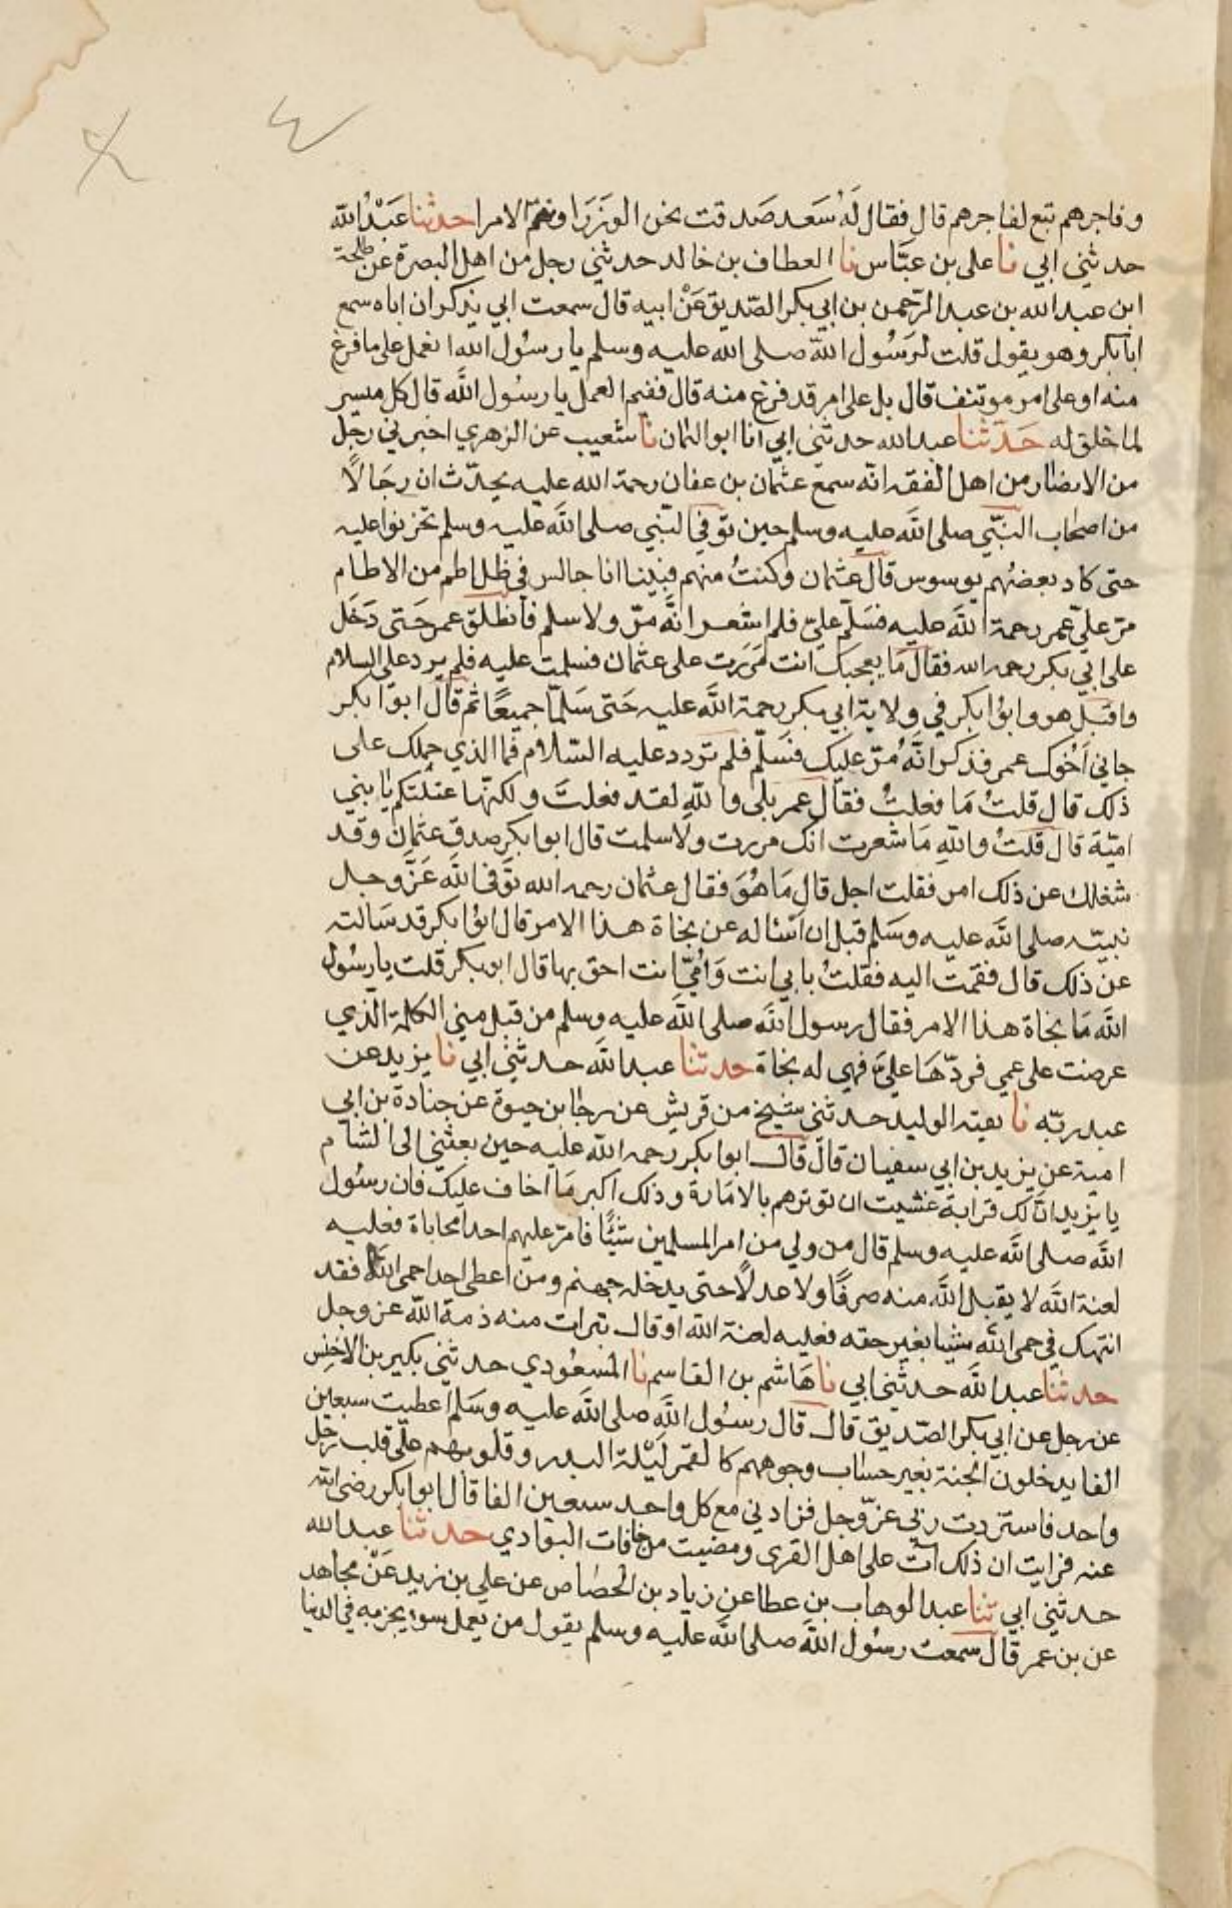 ٤
وفاجرهم تبع لفاجرهم قال فقال له سعد صدقت نحن الوزرا وانتم الامرا حدثنا عبد الله
حدثني ابي نا علي بن عباس نا العطاف بن خالد حدثني رجل من اهل البصرة عن طلحة
ابن عبد الله بن عبد الرحمن بن ابي بكر الصديق عن ابيه قال سمعت ابي يذكر ان اباه سمع
ابا بكر وهو يقول قلت لرسول الله صلى الله عليه وسلم يا رسول الله انعمل على ما فرغ
منه او على امر موتنف قال بل على امر قد فرغ منه قال ففيم العمل يا رسول الله قال كل ميسر
لما خلق له حدثنا عبد الله حدثني ابي انا ابو اليمان نا شعيب عن الزهري اخبرني رجل
من الانصار من اهل الفقه انه سمع عثمان بن عفان رحمة الله عليه يحدث ان رجالا
من اصحاب النبي صلى الله عليه وسلم حين توفي النبي صلى الله عليه وسلم تحزنوا عليه
حتى كاد بعضهم يوسوس قال عثمان وكنت منهم فبينا انا جالس في ظل اطم من الاطام
مر علي عمر رحمة الله عليه فسلم علي فلم اشعر انه مر ولا سلم فانطلق عمر حتى دخل
على ابي بكر رحمه الله فقال ما يعجبك انت مررت على عثمان فسلمت عليه فلم يرد علي السلام
واقبل هو وابوا بكر في ولاية ابي بكر رحمة الله عليه حتى سلما جميعا ثم قال ابوا بكر
جاني اخوك عمر فذكر انه مر عليك فسلم فلم تردد عليه السلام فما الذي حملك على
ذلك قال قلت ما فعلت فقال عمر بلى والله لقد فعلت ولكنها عبتكم يا بني
امية قال قلت والله ما شعرت انك مررت ولا سلمت قال ابوا بكر صدق عثمان وقد
شغلك عن ذلك امر فقلت اجل قال ما هو فقال عثمان رحمه الله توفى الله عز وجل
نبيه صلى الله عليه وسلم قبل ان اسئاله عن نجاة هذا الامر قال ابوا بكر قد سالته
عن ذلك قال فقمت اليه فقلت بابي انت وامي انت احق بها قال ابو بكر قلت يا رسول
الله ما نجاة هذا الامر فقال رسول الله صلى الله عليه وسلم من قبل مني الكلمة الذي
عرضت على عمي فردها علي فهي له نجاة حدثنا عبد الله حدثني ابي نا يزيد عن
عبد ربه نا بقية الوليد حدثني شيخ من قريش عن رجا بن حيوة عن جنادة بن ابي
امية عن يزيد بن ابي سفيان قال قال ابوا بكر رحمه الله عليه حين بعثني الى الشام
يا يزيد ان لك قرابة عشيت ان توثرهم بالامارة وذلك اكبر ما اخاف عليك فان رسول
الله صلى الله عليه وسلم قال من ولي من امر المسلمين شيئا فامر عليهم احدا محاباة فعليه
لعنة الله لا يقبل الله منه صرفا ولا عدلا حتى يدخله جهنم ومن اعطى احدا حمى الله فقد
انتهك في حمى الله شيئا بغير حقه فعليه لعنة الله او قال تبرات منه ذمة الله عز وجل
حدثنا عبد الله حدثني ابي نا هاشم بن القاسم نا المسعودي حدثني بكير بن الاخنس
عن رجل عن ابي بكر الصديق قال قال رسول الله صلى الله عليه وسلم اعطيت سبعين
الفا يدخلون الجنة بغير حساب وجوههم كالقمر ليلة البدر وقلوبهم على قلب رجل
واحد فاستزدت ربي عز وجل فزادني مع كل واحد سبعين الفا قال ابوا بكر رضي الله
عنه فرايت ان ذلك آت على اهل القرى ومضيت من حافات البوادي حدثنا عبد الله
حدثني ابي ثنا عبد الوهاب بن عطا عن زياد بن الحصاص عن علي بن زيد عن مجاهد
عن بن عمر قال سمعت رسول الله صلى الله عليه وسلم يقول من يعمل سوا يجز به في الدنيا